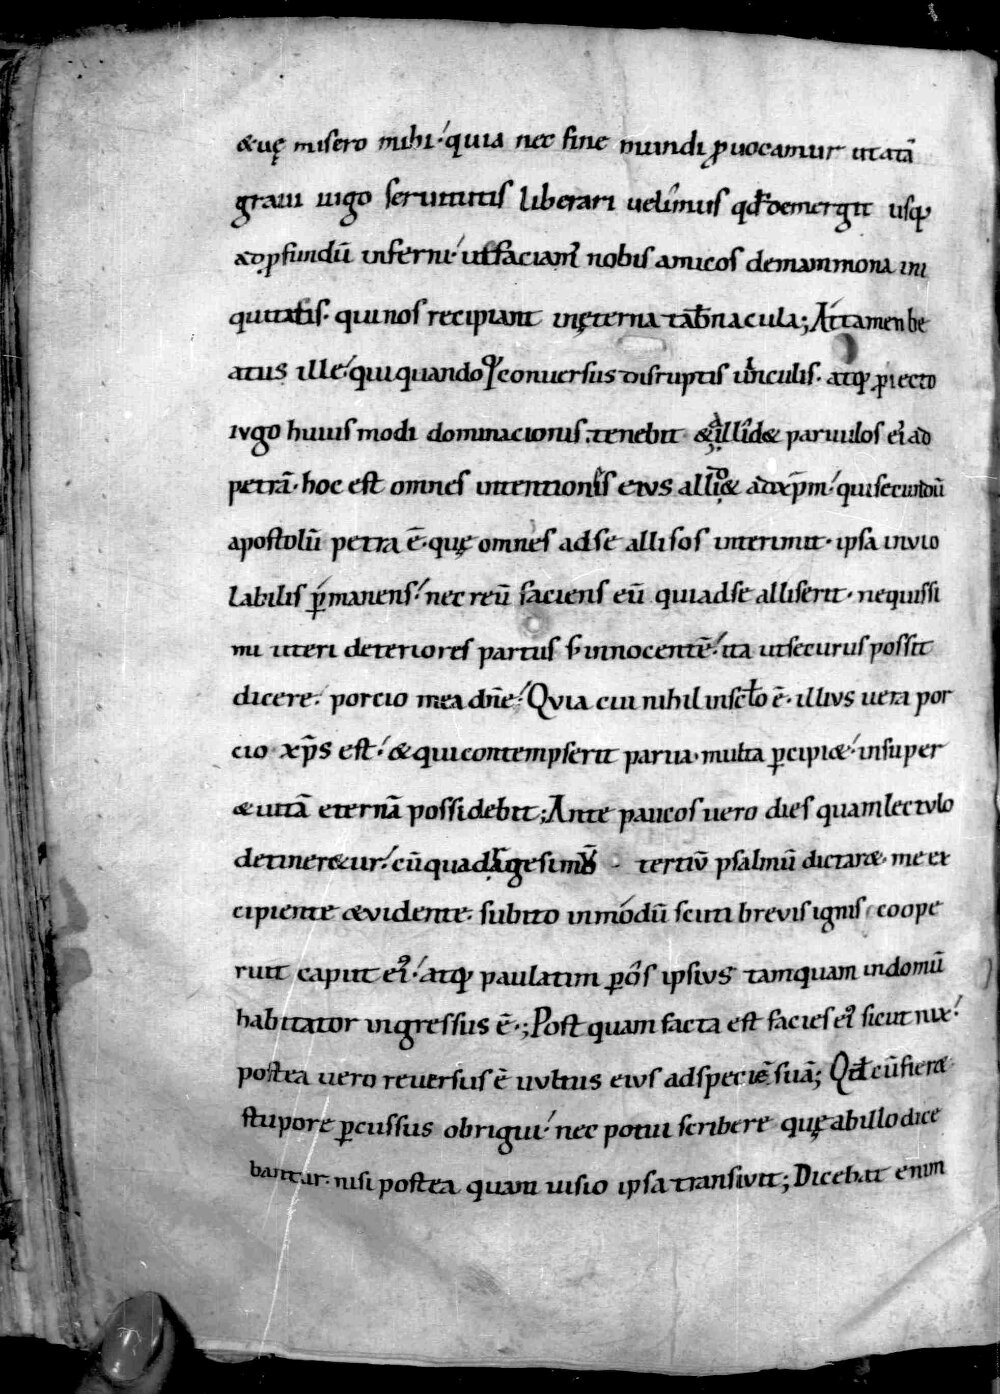 &uę misero mihi·́ quia nec sine mundi ꝓuocamur ut a tā
graui iugo seruitutis liberari uelimus qđ demergit usq;
ad ꝓfundū inferni·́ ut faciam nobis amicos de mammona ini
quitatis· qui nos recipiant in ęterna tab̄nacula; Attamen be
atus ille·́ qui quandoq; conuersus disruptis uinculis· atq; ꝓiecto
iugo huius modi dominacionis· tenebit & allid& paruulos ei ad
petrā· hoc est omnes intentionis eius allid& ad xp̄m·́ qui secundū
apostolū petra ē· quę omnes ad se allisos interimit· ipsa inuio
labilis p̱manens·́ nec reū faciens eū qui ad se alliserit· nequissi
mi uteri deteriores partus s; innocentē·́ ita ut securus possit
dicere·́ porcio mea dn̄e·́ Quia cui nihil in sclo ē· illius uera por
cio xp̄s est·́ & qui contempserit parua· multa p̱cipi&·́ insuper
& uitā eternā possidebit; Ante paucos uero dies quam lectulo
deliner&ur·́ cū quadragesimū tertiū psalmū dictar&· me ex
cipiente & uidente· subito in modū scuti breuis ignis coope
ruit caput ei'·́ atq; paulatim p̱ os ipsius tamquam in domū
habitator ingressus ē·; Post quam facta est facies ei' sicut nix·́
postea uero reuersus ē uultus eius ad speciē suā; Qđ cū fier&
stupore p̱cussus obrigui·́ nec potui scribere quę ab illo dice
bantur· nisi postea quam uisio ipsa transiuit; Dicebat enim